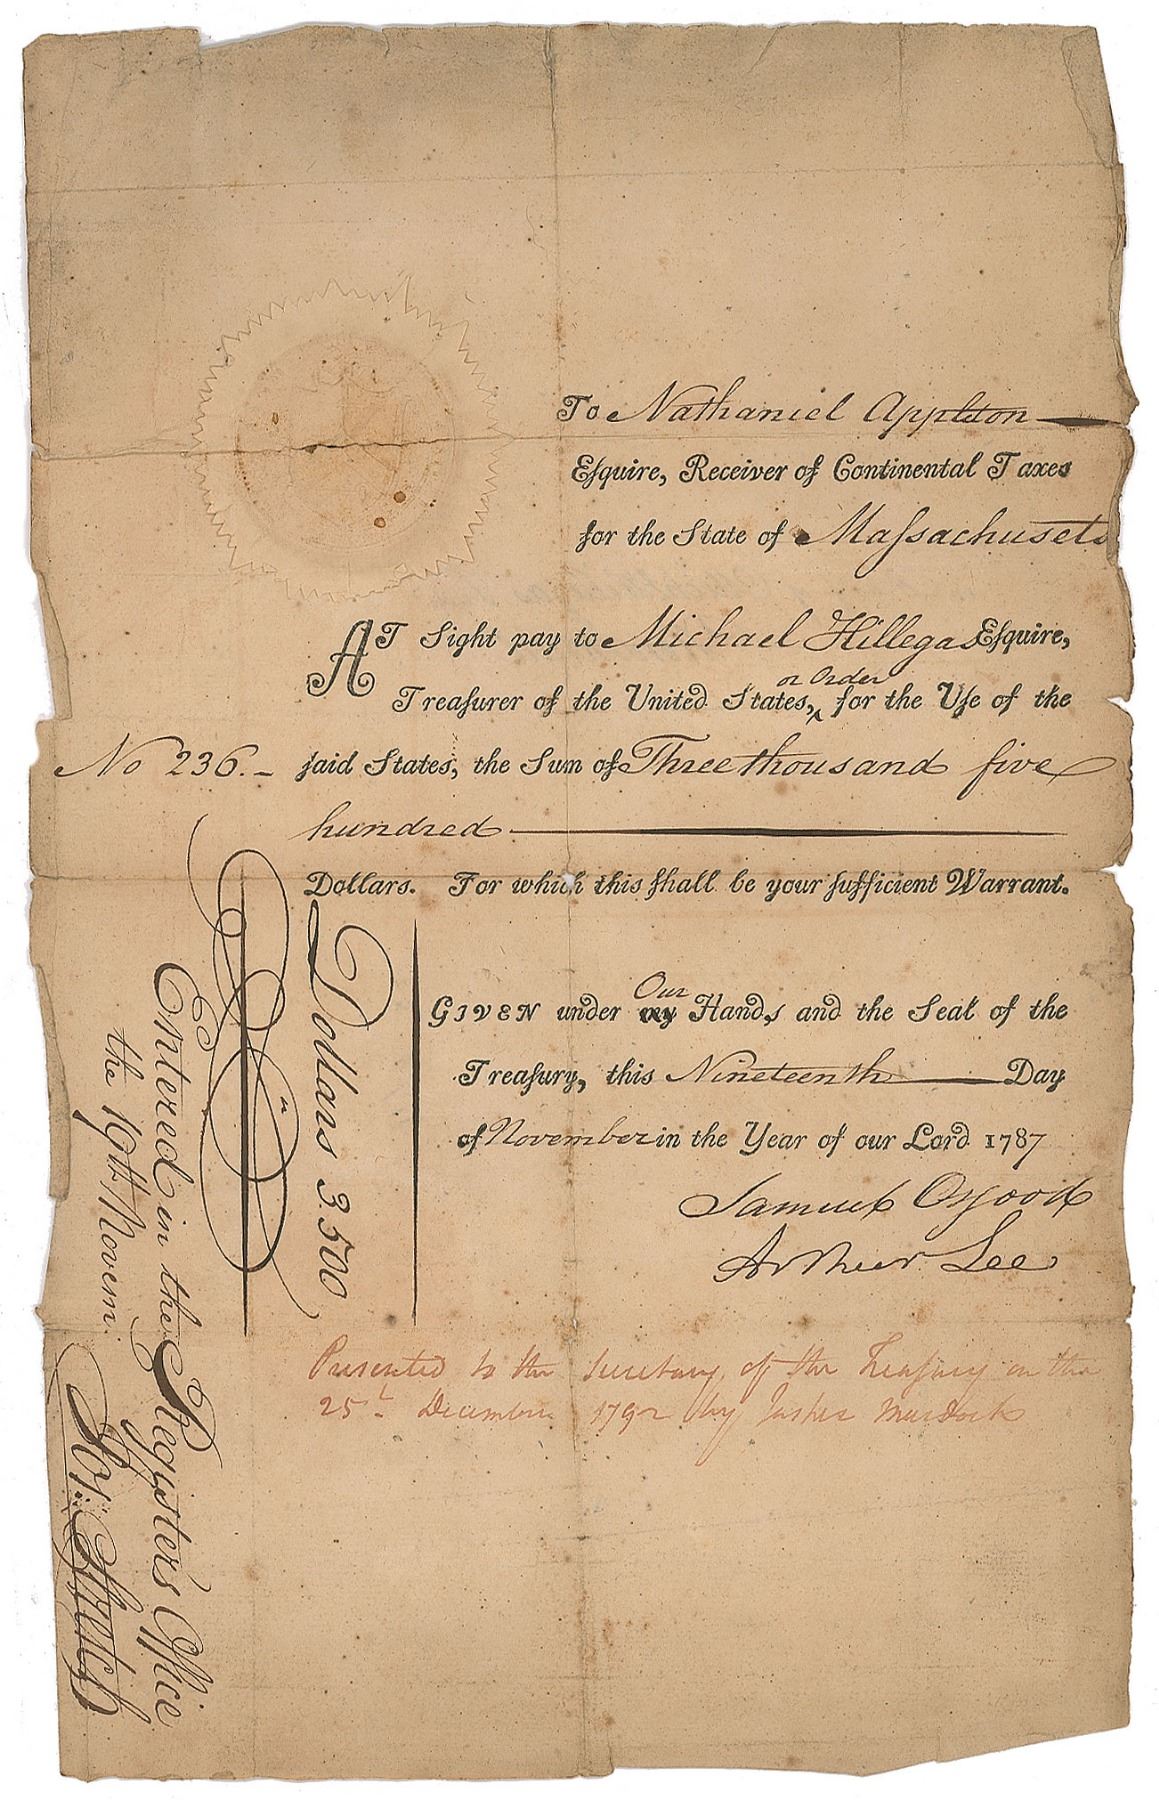 To Nathaniel Appleton
Eſquire, Receiver of Continental Taxes
for the State of Maſsachusets
AT Sight pay to Michael Hillegas Eſquire,
or Order
Treaſurer of the United States,‸ for the Uſe of the
No 236.- ſaid States, the Sum of Three thousand five
hundred
Dollars. For which this ſhall be your ſufficient Warrant.
Dollars 3.500
Our
GIVEN under my Hands and the Seal of the
Treaſury, this Nineteenth Day
of November in the Year of our Lord 1787
Samuel Osgood
Arthur Lee
Entered in the Register's Office
the 19th Novem:
Presented to the Secretary of the Treaſury on the
25th December 1792 by